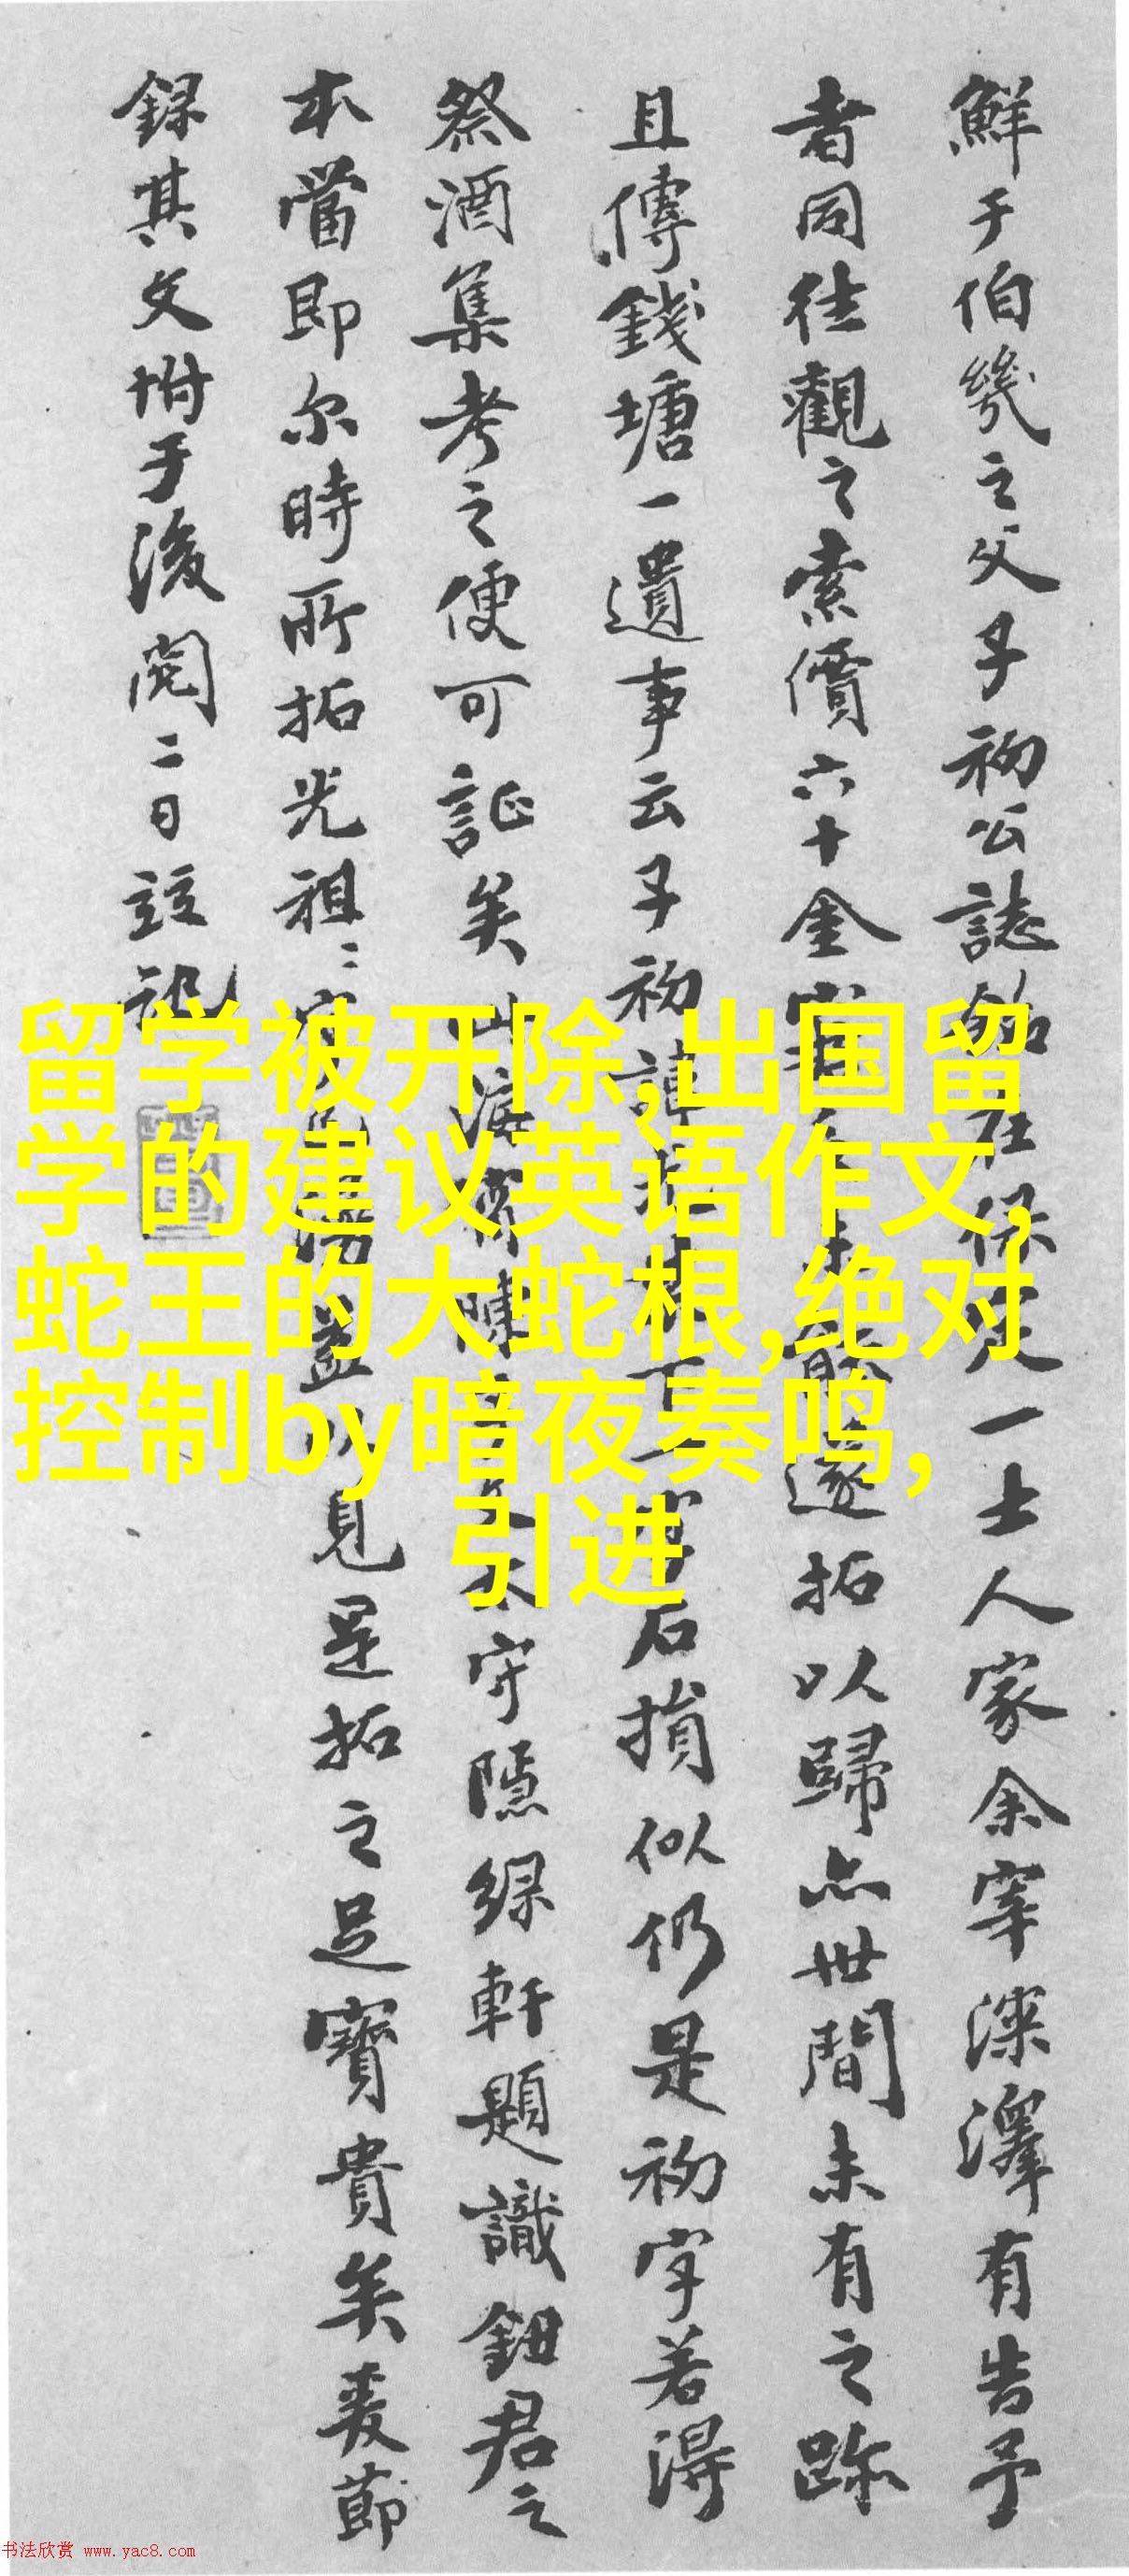 鮮于伯幾之父子初公誌銘在保定一士人家余宰深澤有告予
者同往觀之索價六十金遂拓以歸亦世間未有之跡
且傳錢塘一遺事云子初諱石損似仍是初字若得
祭酒集考之便可証矣山濱守隱綠軒題識鈕君之
本當即尔時所拓光祖以見是拓之足寶貴矣爰節
錄其文坿于後閱二日註記
留学被开除,出国留
学的建议英语作文,
蛇王的大蛇根,绝对
控制by暗夜奏鸣,
引进
书法欣赏 www.yac8.com